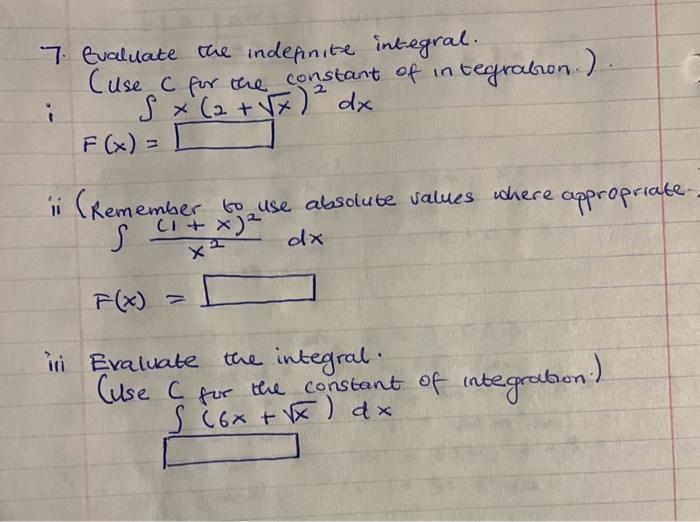 7. Evaluate the indefinite integral.
(Use C for the constant of integration.).
i ∫ x (2 + √x)² dx
F(x) =
ii (Remember to use absolute values where appropriate.
∫ (1 + x)² / x² dx
F(x) =
iii Evaluate the integral.
(Use C for the constant of integration.)
∫ (6x + √x) dx